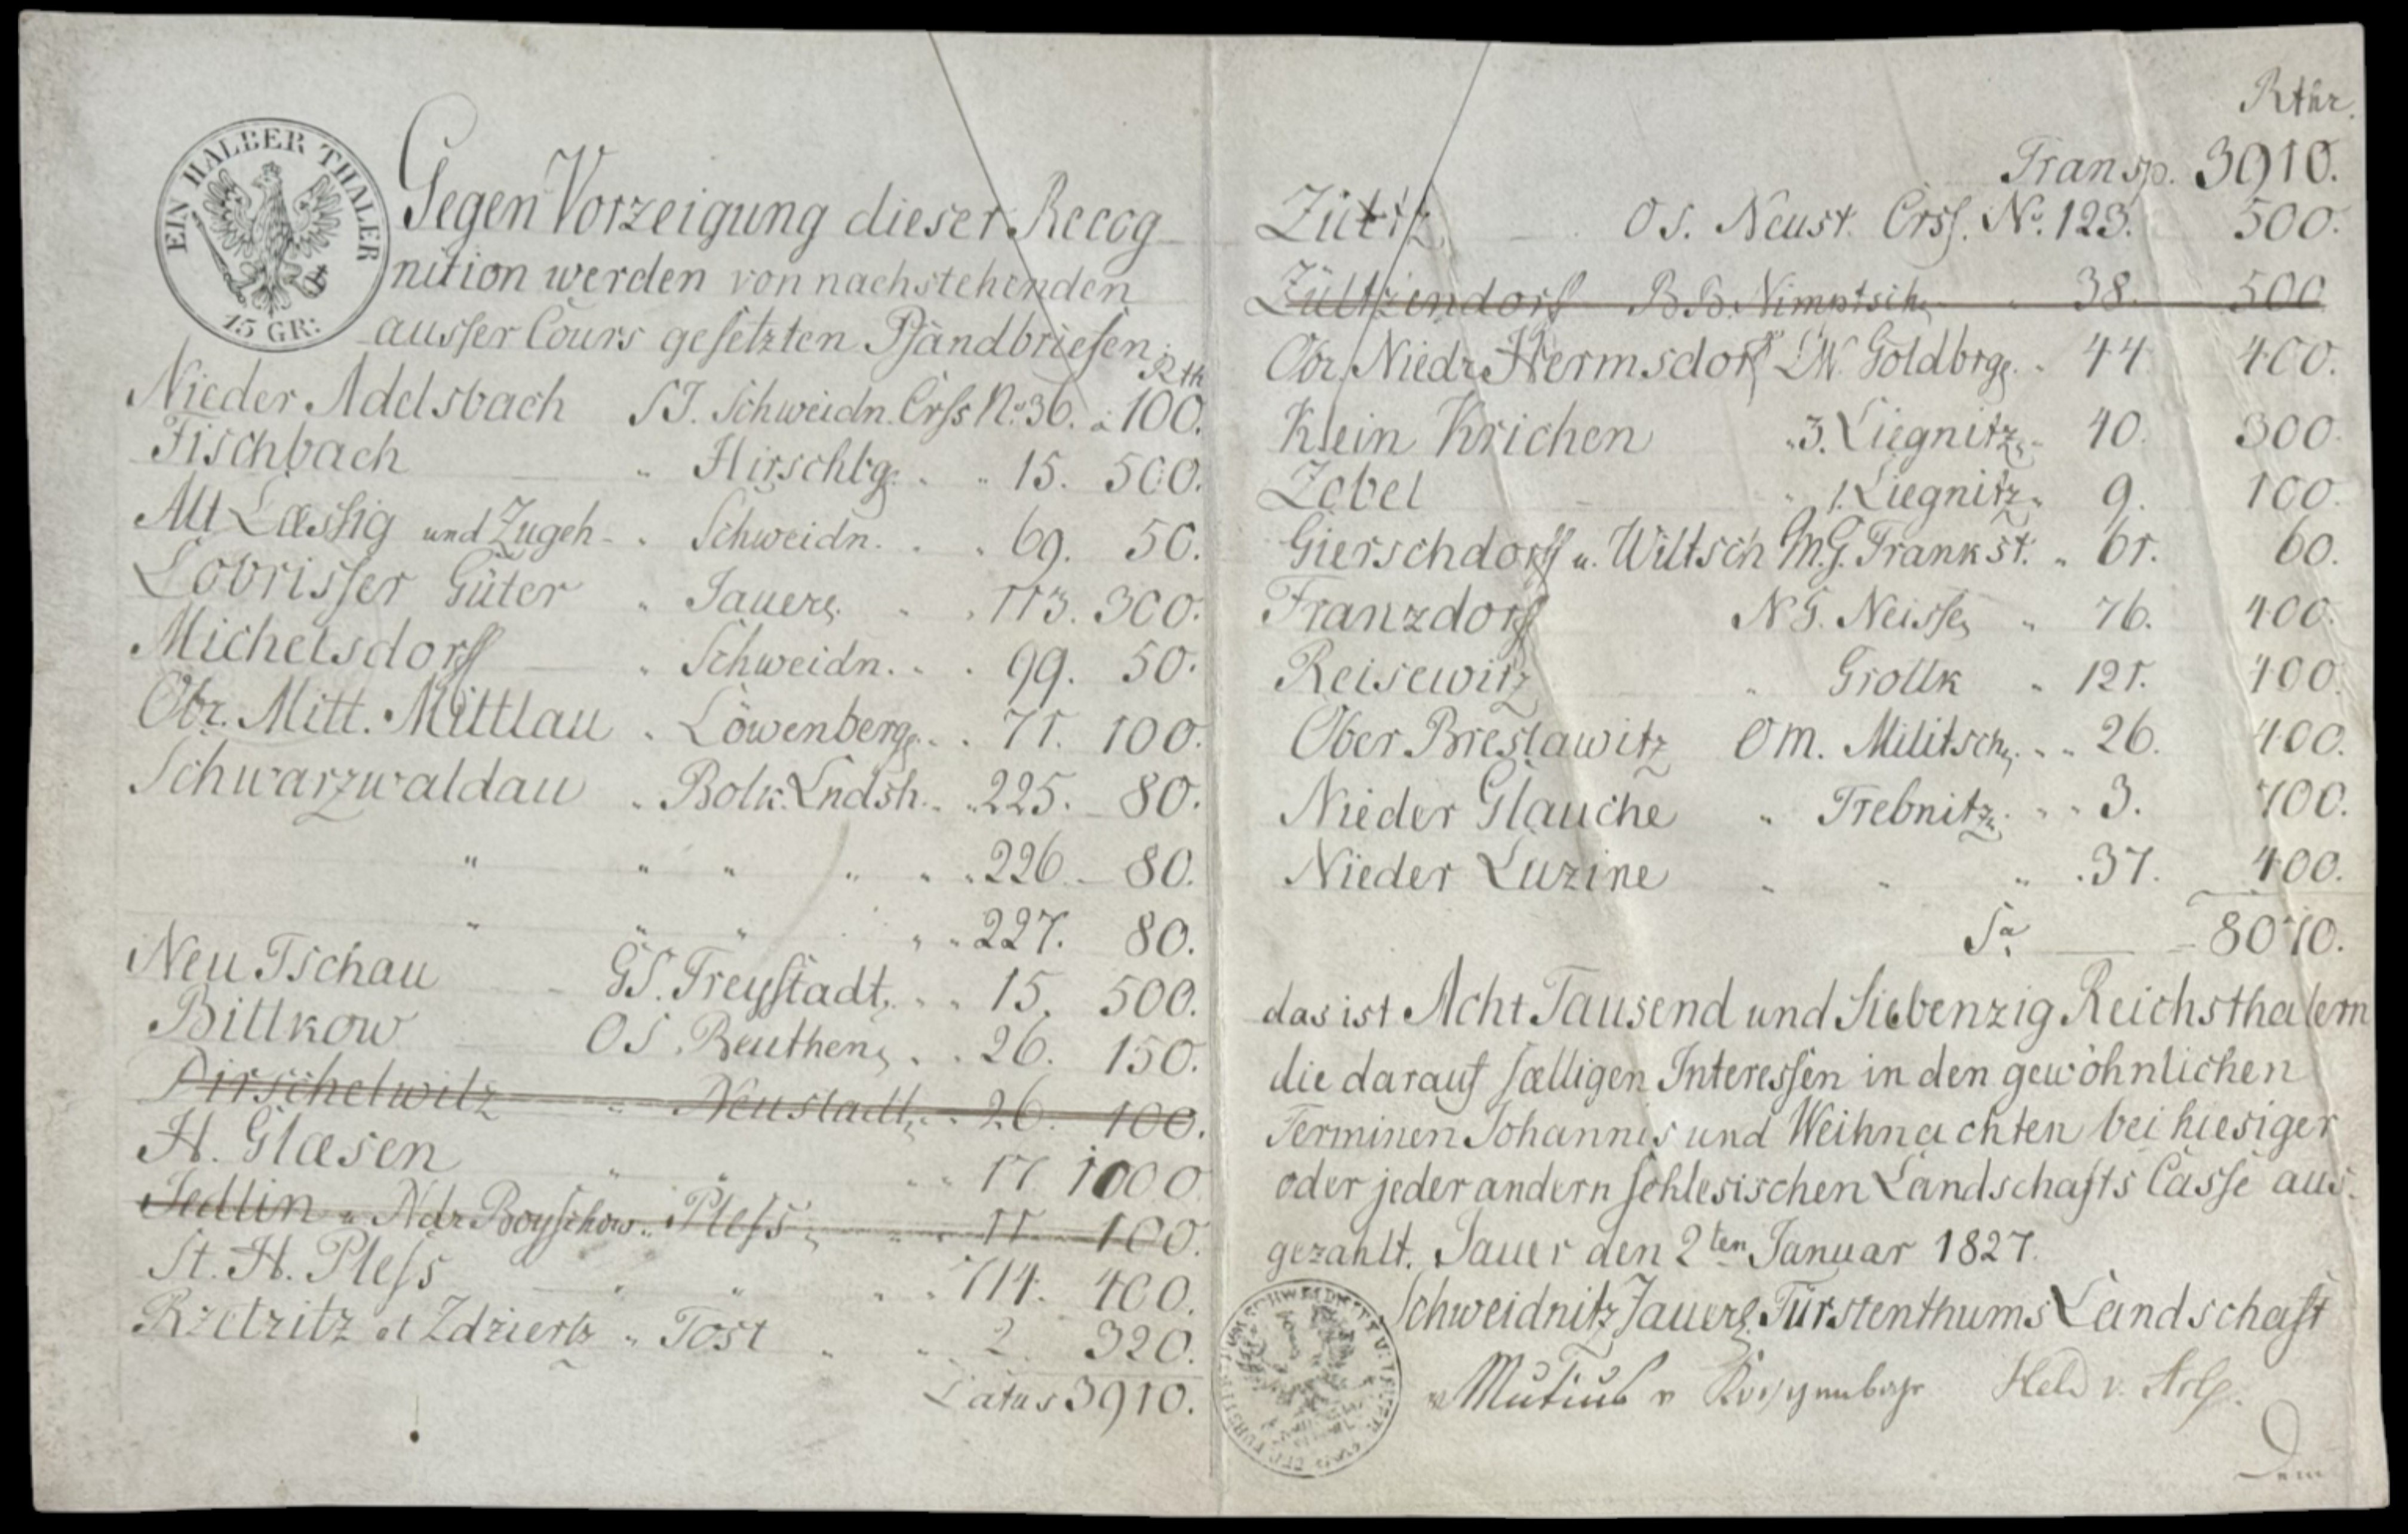 EIN HALBER THALER
15 GR:
Gegen Vorzeigung dieser Recog
nition werden von nachstehenden
ausser Cours gesetzten Pfandbriefen:
Rth
Nieder Adelsbach SJ. Schweidn. Crss No. 36. a 100.
Fischbach " Hirschbg. " " 15. 500.
Alt Læssig und Zugeh. " Schweidn. " " 69. 50.
Lobrisser Güter " Jauer " " 113. 300.
Michelsdorff " Schweidn. " " 99. 50.
Obr. Mitt. Mittlau " Löwenberg " " 71. 100.
Schwarzwaldau " Bolk. Lndsh. " " 225. 80.
" " " " " " 226. 80.
" " " " " 227. 80.
Neu Tschau GS. Freystadt " " 15. 500.
Bittkow OS. Beuthen " " 26. 150.
Dirschelwitz " Neustadt " " 26. 100.
H. Glæsen " " " " 17 1000
Sedlin u Ndr Boyschow " Pless " " 11. 100.
St. H. Pless " " " " 714. 400.
Rzetzitz et Zdziertz " Tost " " 2. 320.
Latus 3910.
Rthr.
Transp. 3910.
Zültz OS. Neust. Crss. No. 123. 500.
Zültzendorf BB. Nimptsch " 38. 500
Obr. Niedr Hermsdorf LW. Goldbrg. " 44. 400.
Klein Krichen " 3. Liegnitz " 40. 300.
Zobel " 1. Liegnitz " 9. 100.
Gierschdorff u. Wiltsch M.G. Frankst. " 61. 60.
Franzdorff NG. Neisse " 76. 400.
Reisewitz " Grottk " 121. 400.
Ober Breslawitz OM. Militsch " " 26. 400.
Nieder Glauche " Trebnitz " " 3. 700.
Nieder Luzine " " " " 37. 400.
Sa. 8070.
das ist Acht Tausend und Siebenzig Reichsthalern
die darauf fælligen Interessen in den gewöhnlichen
Terminen Johannis und Weihnachten bei hiesiger
oder jeder andern schlesischen Landschafts Casse aus-
gezahlt. Jauer den 2ten Januar 1827.
Schweidnitz Jauer Fürstenthums Landschaft
v Mutius v Held v.